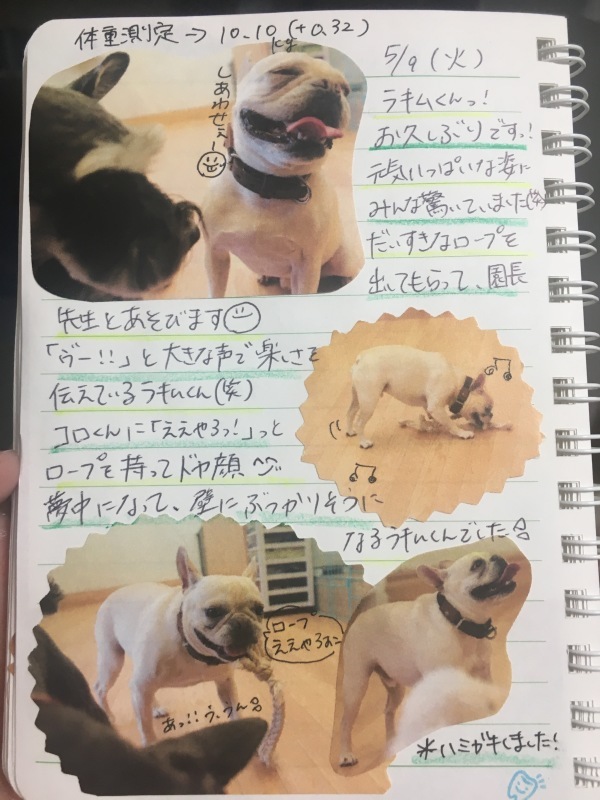 体重測定→10.10kg(+0.32)
5/9(火)
しあわせぇー
ラキムくんっ!
お久しぶりですっ!
元気いっぱいな姿に
みんな驚いていました(笑)
だいすきなロープを
出してもらって、園長
先生とあそびます
「ゔー!!」と大きな声で楽しさを
伝えているラキムくん(笑)
コロくんに「ええやろっ!」っと
ロープを持ってドヤ顔
夢中になって、壁にぶつかりそうに
なるラキムくんでした
ロープ
ええやろぉ〜
あっ!!う、うん
*ハミガキしました!